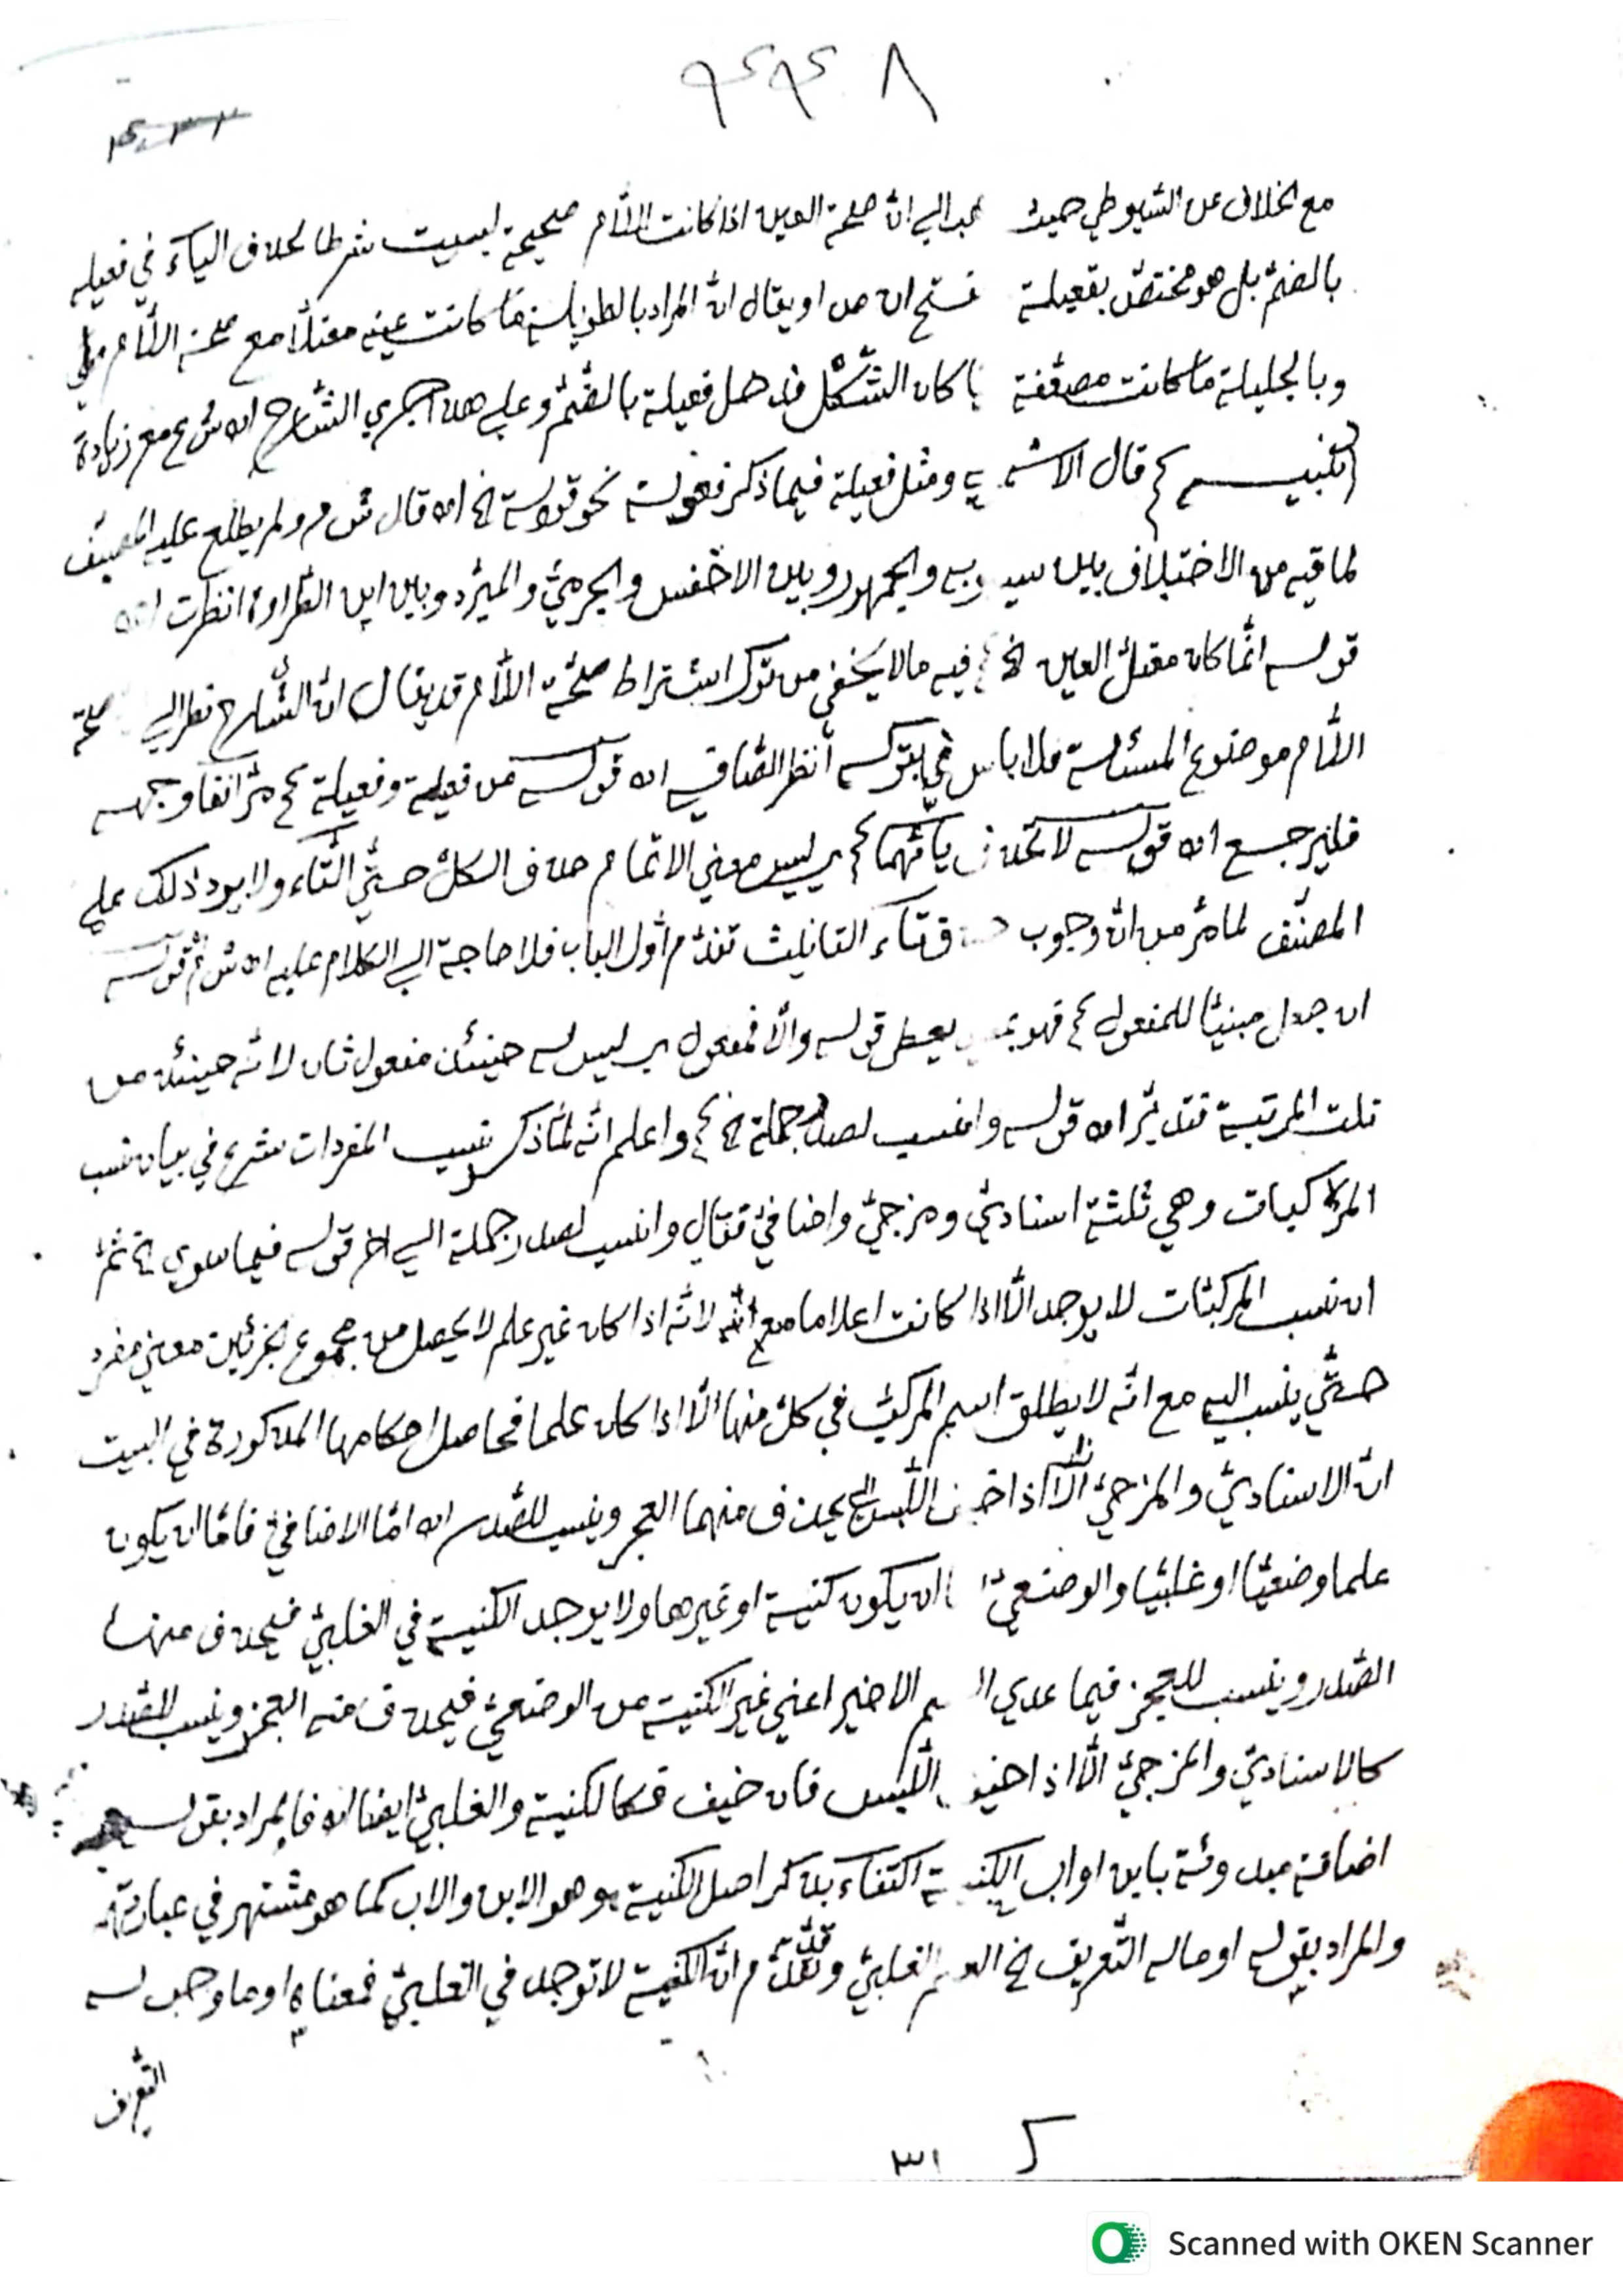 ٨ ٤٩ ٤٩
مع الخلاف عن السّيوطي حيث الي انّ صحة العين اذا كانت اللّام صحيحة ليست شرطا لحذف الياء في فعيله
بالضمّ بل هو مختصّ بفعيلة او يقال انّ المراد بالطويلة ما كانت عينه معتلّا مع صحة اللّام
وبالجليلة ما كانت مضعّفة كان الشّكل فدخل فعيلة بالضّمّ وعلي هذا جري الشّارح اه ش ع مع زيادة
تنبيه قال الاشموني ومثل فعيلة فيما ذكر فعولة نحو قولة الخ اه قال ش م ولم يطلع عليه المصنّف
لما فيه من الاختلاف بين سيبويه والجمهور وبين الاخفس والجرميّ والمبرّد وبين ابن الطّراوة انظرت اه
قوله انّما كان معتلّ العين الخ فيه ما لا يخفي من ترك اشتراط صحّة اللّام قد يقال انّ الشّارح نظر الي صحّة
اللّام موضوع المسئلة فلا باس في تركه انظر الصّافي اه قوله من فعيلة وفعيلة مرّ انفا وجهه
فليرجع اه قوله لا تحذف يائهما ليس معني الاتمام حذف الكلّ حتّي التّاء ولا يرد ذلك علي
المصنّف لما مرّ من انّ وجوب حذف تاء التانيث تقدّم اوّل الباب فلا حاجة الي الكلام عليه اه ش م قوله
ان جعل مبنيّا للمفعول فهو بمعني يعطي قوله والّا فمفعول ليس له حينئذ مفعول ثان لانّه حينئذ من
تلت المرتبة فتدبّر اه قوله وانسب لصدر جملة الخ واعلم انّه لمّا ذكر نسب المفردات شرع في بيان نسب
المركبات وهي ثلثة اسناديّ ومزجيّ واضافيّ فقال وانسب لصدر جملة الي اخر قوله فيما سوي الخ ثمّ
ان نسب المركبّات لا يوجد الّا اذا كانت اعلاما مع انّه لانّه اذا كان غير علم لا يحصل من مجموع الجزئين معني مفرد
حتّي ينسب اليه مع انّه لا يطلق اسم المركّب في كلّ منها الّا اذا كان علما فحاصل احكامها المذكورة في البيت
انّ الاسناديّ والمزجيّ الّا اذا خيف اللّبس يحذف منهما العجز وينسب للصّدر اه امّا الاضافيّ فامّا ان يكون
علما وضعيّا او غلبيّا والوضعيّ ان يكون كنية او غيرها ولا يوجد الكنية في الغلبيّ فيحذف منها
الصّدر وينسب للعجز فيما عدي الاخير اعني غير الكنية من الوضعيّ فيحذف منه العجز وينسب للصّدر
كالاسناديّ والمزجيّ الّا اذا خيف اللّبس فان خيف فكالكنية والغلبيّ ايضا اه فالمراد بقوله
اضافة مبدوئة باين او اب الكنية اكتفاء بذكر اصل الكنية وهو الابن والاب كما هو مشتهر في عباراتهم
والمراد بقوله او ماله التّعريف الخ العلم الغلبيّ وتقدّم انّ الكنية لا توجد في الغلبيّ فمعناه او ما وجب له
التّعريف
٣١
Scanned with OKEN Scanner